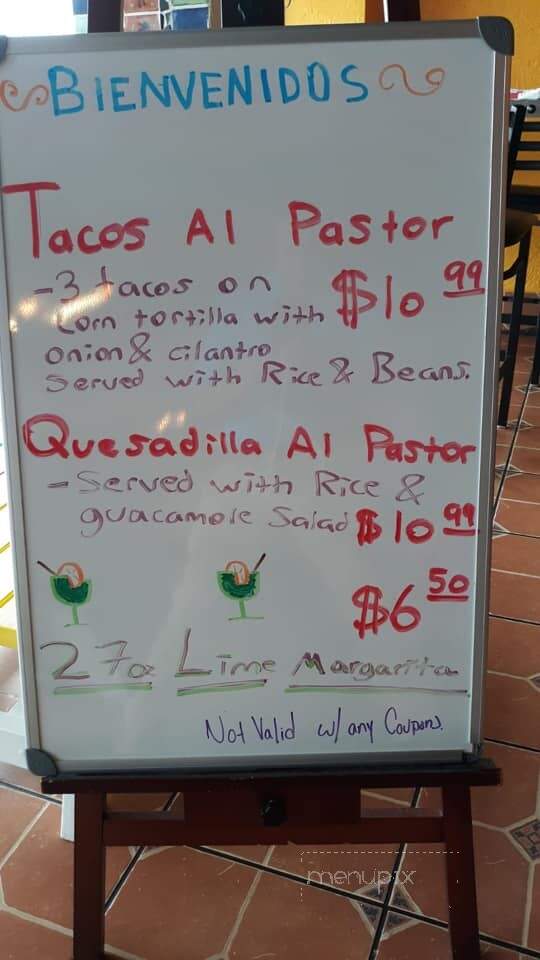 BIENVENIDOS
Tacos Al Pastor
-3 tacos on
corn tortilla with $10.99
onion & cilantro
Served with Rice & Beans.
Quesadilla Al Pastor
-Served with Rice &
guacamole Salad $10.99
$6.50
27oz Lime Margarita
Not Valid w/ any Coupons.
menupix